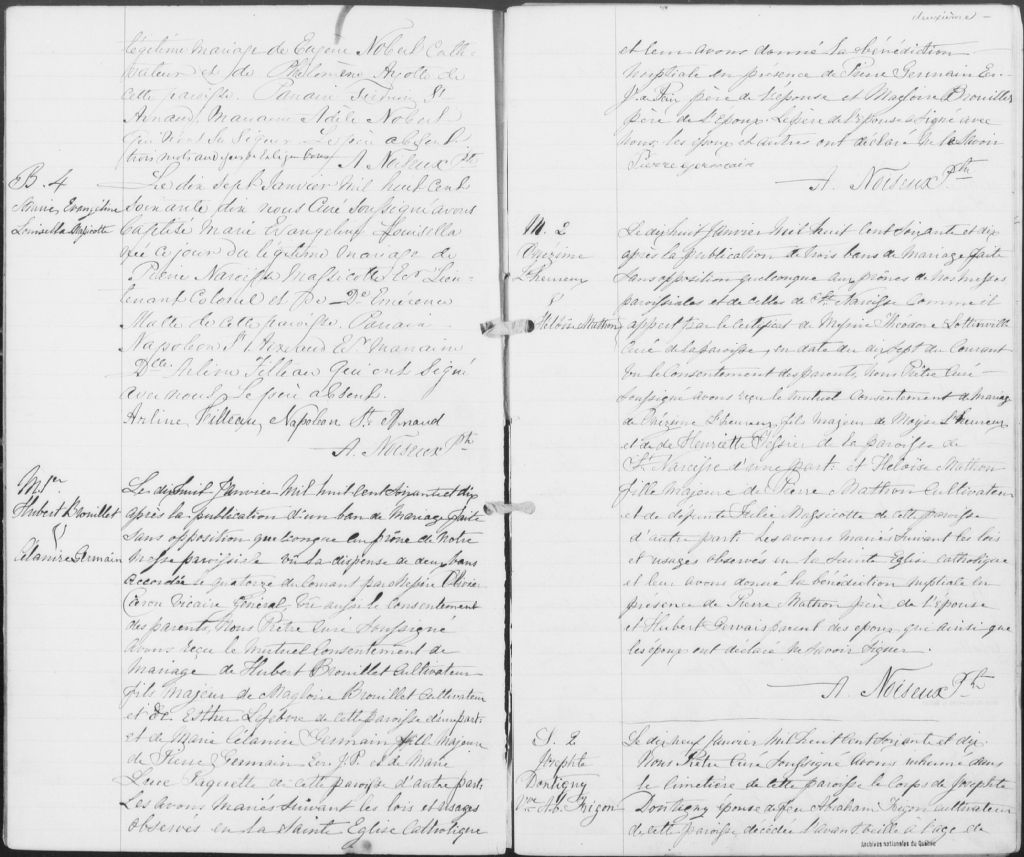 légitime mariage de Eugène Nobert Culti-
vateur et de Philomène Ayotte de
cette paroisse. Parrain St-
Arnaud, Marraine Adèle Nobert
qui n'ont su signer. Le père absent
A. Noiseux Ptre
B. 4
Marie Evangéline
Louisella Massicotte
Le dix sept Janvier mil huit cent
soixante dix nous Curé soussigné avons
baptisé Marie Evangeline Louisella
née ce jour du légitime mariage de
Pierre Narcisse Massicotte Ecr Lieu-
tenant Colonel et de De Emérence
de cette paroisse. Parrain
Napoleon St Arnaud Er Marraine
Dlle Arline Filleau qui ont signé
avec nous. Le père absent.
Arline Filleau, Napoleon St Arnaud
A. Noiseux Pth
M. 1er
Hubert Brouillet
&
Célanire Germain
Le dix huit Janvier mil huit cent soixante et dix
après la publication d'un ban de mariage faite
sans opposition quelconque au prône de notre
messe paroissiale vu la dispense de deux bans
accordée le quatorze du courant par Messire Olivier
Caron Vicaire Général, vu aussi le consentement
des parents, Nous Prêtre Curé soussigné
avons reçu le mutuel consentement de
mariage de Hubert Brouillet Cultivateur
fils majeur de Magloire Brouillet Cultivateur
et de Esther Lefebvre de cette paroisse d'une part
et de Marie Célanire Germain fille majeure
de Pierre Germain Ecr J.P. et de Marie
Luce Paquette de cette paroisse d'autre part.
Les avons mariés suivant les lois et usages
observés en la Sainte Eglise Catholique
deuxième
et leur avons donné la bénédiction
nuptiale en présence de Pierre Germain Ecr
J. de Paix père de l'épouse et Magloire Brouillet
père de l'époux. Le père de l'épouse a signé avec
nous les époux et autres ont déclaré ne le savoir
Pierre Germain
A. Noiseux Pth
M. 2
Onézime
L'heureux
&
Héloïse Mathon
Le dix huit Janvier mil huit cent soixante et dix
après la publication de trois bans de mariage faite
sans opposition quelconque aux prônes de nos messes
paroissiales et de celles de St. Narcisse comme il
appert par le certificat de Messire Théodore Lottinville
Curé de la paroisse, en date du dix sept du Courant
vu le consentement des parents, Nous Prêtre Curé
soussigné avons reçu le mutuel consentement de mariage
de Onézime L'heureux, fils majeur de L'heureux
et de de Henriette de la paroisse de
St. Narcisse d'une part: et Héloïse Mathon
fille majeure de Pierre Mathon Cultivateur
et de défunte Julie Massicotte de cette paroisse
d'autre part. Les avons mariés suivant les lois
et usages observés en la Sainte Eglise catholique
et leur avons donné la bénédiction nuptiale en
présence de Pierre Mathon père de l'épouse
et Hubert Gervais parent des époux qui ainsi que
les époux ont déclaré ne savoir signer.
A. Noiseux Pth
S. 2
Josephte
Dontigny
Vve Ab. Frigon
Le dix neuf Janvier mil huit cent soixante et dix
Nous Prêtre Curé soussigné avons inhumé dans
le cimetière de cette paroisse le corps de Josephte
Dontigny épouse de feu Abraham Frigon cultivateur
de cette paroisse décédée l'avant veille à l'age de
Archives nationales du Québec